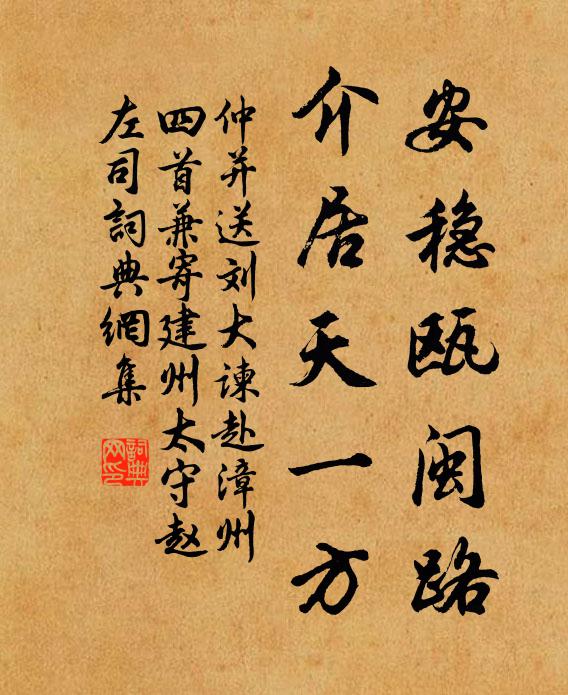 安稳瓯闽路
介居天一方
仲并送刘大谏赴漳州
四首兼寄建州太守赵
左司詞典網集
詞典
网印